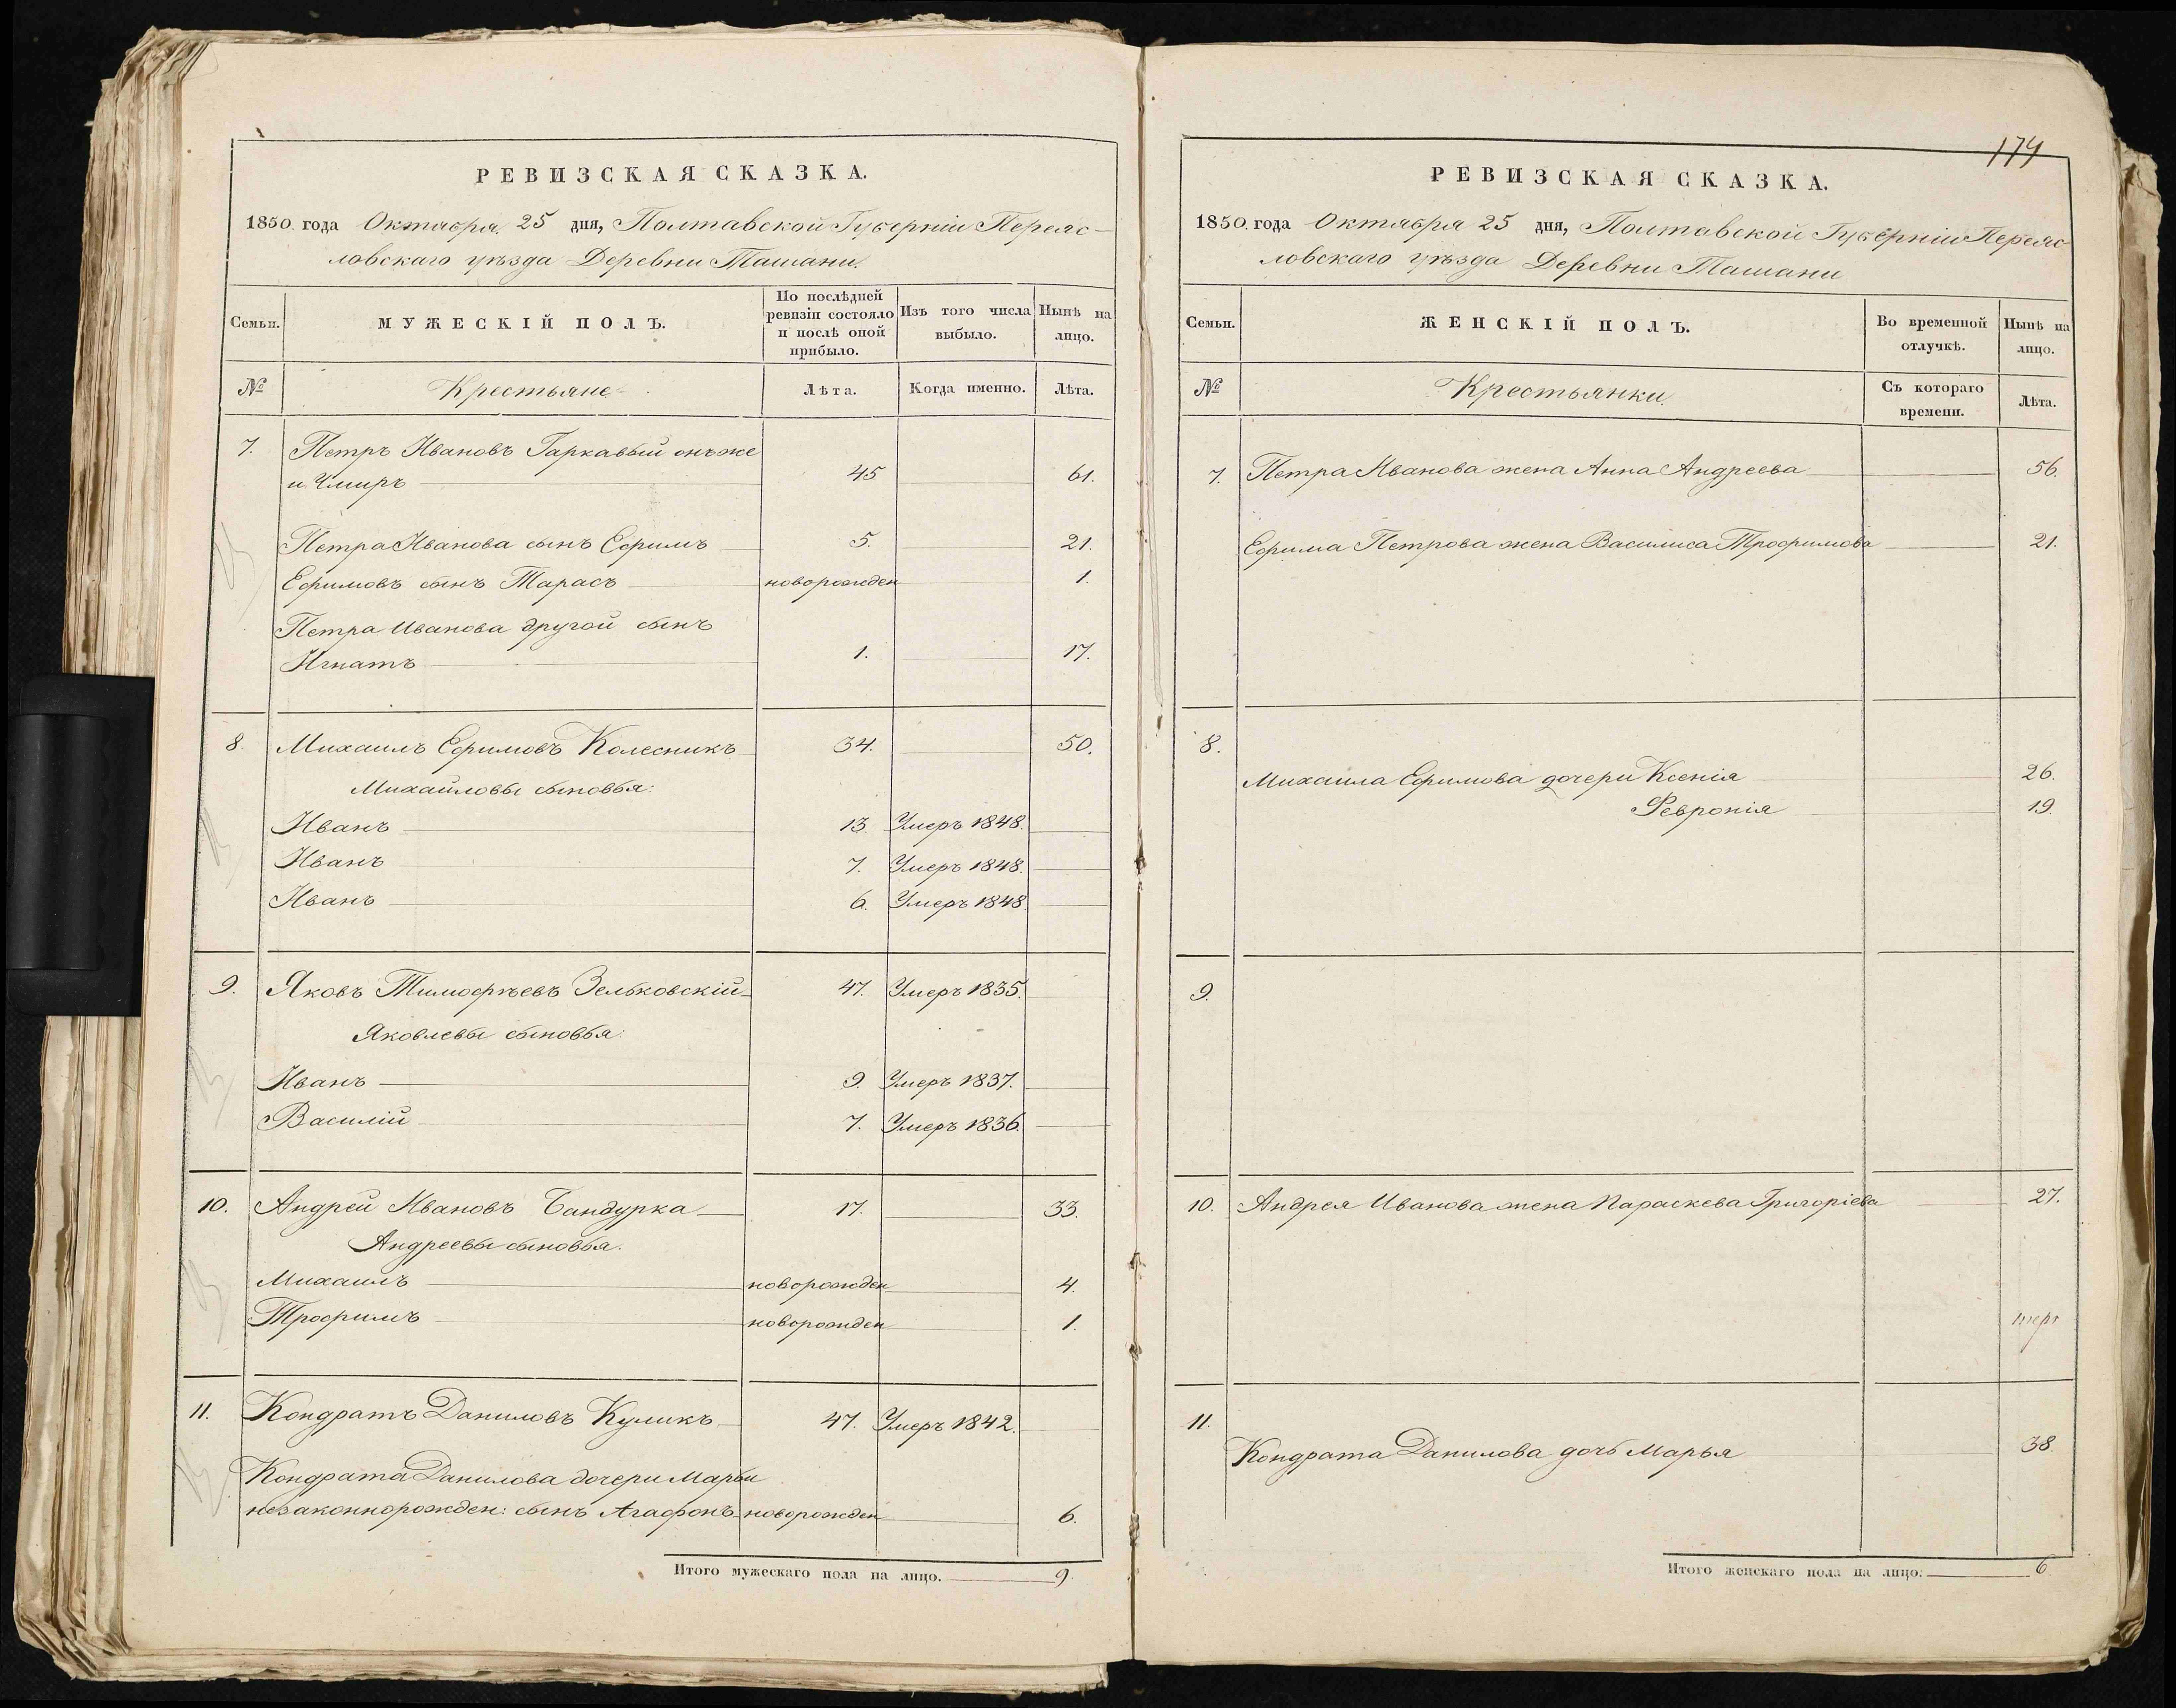 РЕВИЗСКАЯ СКАЗКА.
1850 года Октября 25 дня, Полтавской Губерніи Переяс-
ловскаго уѣзда Деревни Ташани.
Семьи.
МУЖЕСКІЙ ПОЛЪ.
По послѣдней ревизіи состояло и послѣ оной прибыло.
Изъ того числа выбыло.
Нынѣ на лицо.
№ Крестьяне Лѣта. Когда именно. Лѣта.
7. Петръ Ивановъ Гаркавый онъ же
и 45 61.
Петра Иванова сынъ Ефимъ 5. 21.
Ефимовъ сынъ Тарасъ новорожден 1.
Петра Иванова другой сынъ
Игнатъ 1. 17.
8. Михаилъ Ефимовъ Колесникъ 34. 50.
Михайловы сыновья:
Иванъ 13. Умеръ 1848.
Иванъ 7. Умеръ 1848.
Иванъ 6. Умеръ 1848.
9. Яковъ Тимофѣевъ Зельковскій 47. Умеръ 1835.
Яковлевы сыновья:
Иванъ 9. Умеръ 1837.
Василій 7. Умеръ 1836.
10. Андрей Ивановъ Бандурка 17. 33.
Андреевы сыновья.
Михаилъ новорожден 4.
Трофимъ новорожден 1.
11. Кондратъ Даниловъ Куликъ 47. Умеръ 1842.
Кондрата Данилова дочери Марьи
незаконнорожден: сынъ Агафонъ новорожден 6.
Итого мужескаго пола на лицо. 9.
174
РЕВИЗСКАЯ СКАЗКА.
1850 года Октября 25 дня, Полтавской Губерніи Переяс
ловскаго уѣзда Деревни Ташани
Семьи.
ЖЕНСКІЙ ПОЛЪ.
Во временной отлучкѣ.
Нынѣ на лицо.
№ Крестьянки. Съ котораго времени. Лѣта.
7. Петра Иванова жена Анна Андреева 56.
Ефима Петрова жена Василиса Трофимова 21.
8.
Михаила Ефимова дочери Ксенія 26.
Февронія 19.
9.
10. Андрея Иванова жена Параскева Григоріева 27.
11.
Кондрата Данилова дочь Марья 38.
Итого женскаго пола на лицо. 6